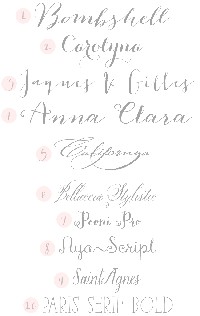 1 Bombshell
2 Carolyna
3 Jaques & Gilles
4 Anna Clara
5 Californya
6 Bellucia Stylistic
7 Peoni Pro
8 Aya Script
9 Saint Agnes
10 PARIS SERIF BOLD